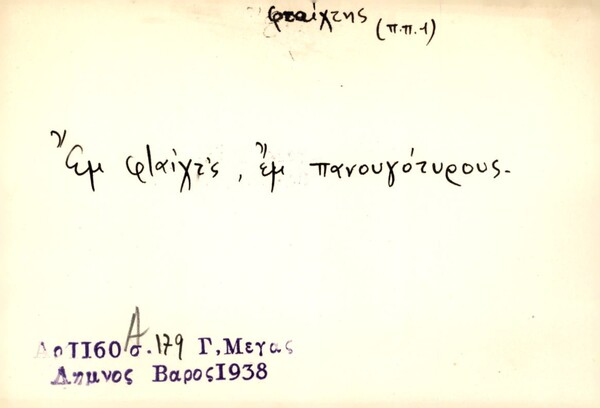 φταίχτης (π.π.1)
Ἔμ φταίχτ'ς, ἔμ πανουγότυρους.
ΑρΤΙ60 Α σ. 179 Γ, Μεγας
Λημνος Βαρος1938